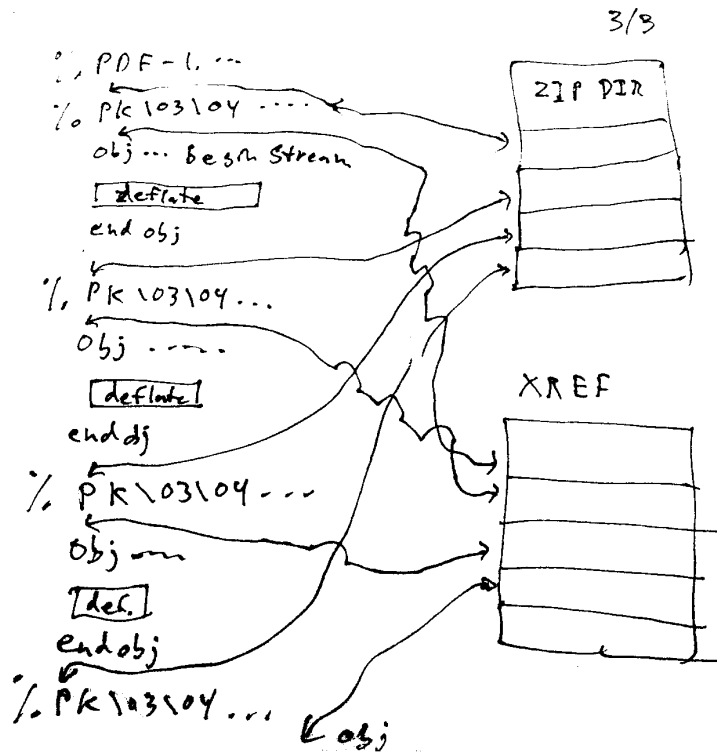 3/3
% PDF-1. ...
% PK\03\04 ....
obj ... Begin Stream
deflate
end obj
% PK\03\04 ...
obj .....
deflate
end obj
% PK\03\04 ...
obj ...
def.
endobj
% PK\03\04 ...
obj
ZIP DIR
XREF